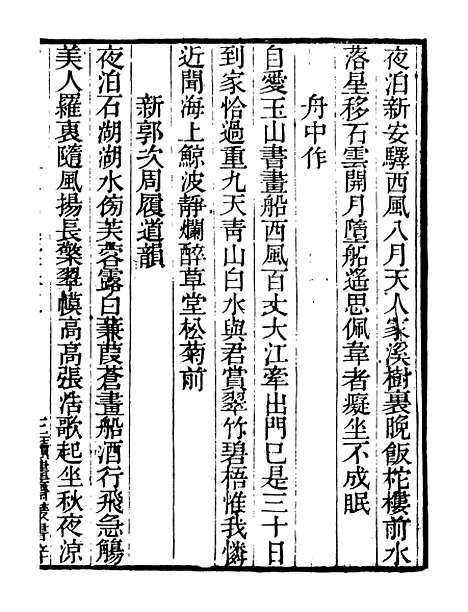 夜泊新安驛西風八月天人家溪樹裏晚飯柁樓前水
落星移石雲開月墮船遙思佩韋者癡坐不成眠
舟中作
自愛玉山書畫船西風百丈大江牽出門已是三十日
到家恰過重九天青山白水與君賞翠竹碧梧惟我憐
近聞海上鯨波靜爛醉草堂松菊前
新郭次周履道韻
夜泊石湖湖水傍芙蓉露白蒹葭蒼畫船酒行飛急觴
美人羅衷隨風揚長檠翠幙高高張浩歌起坐秋夜涼